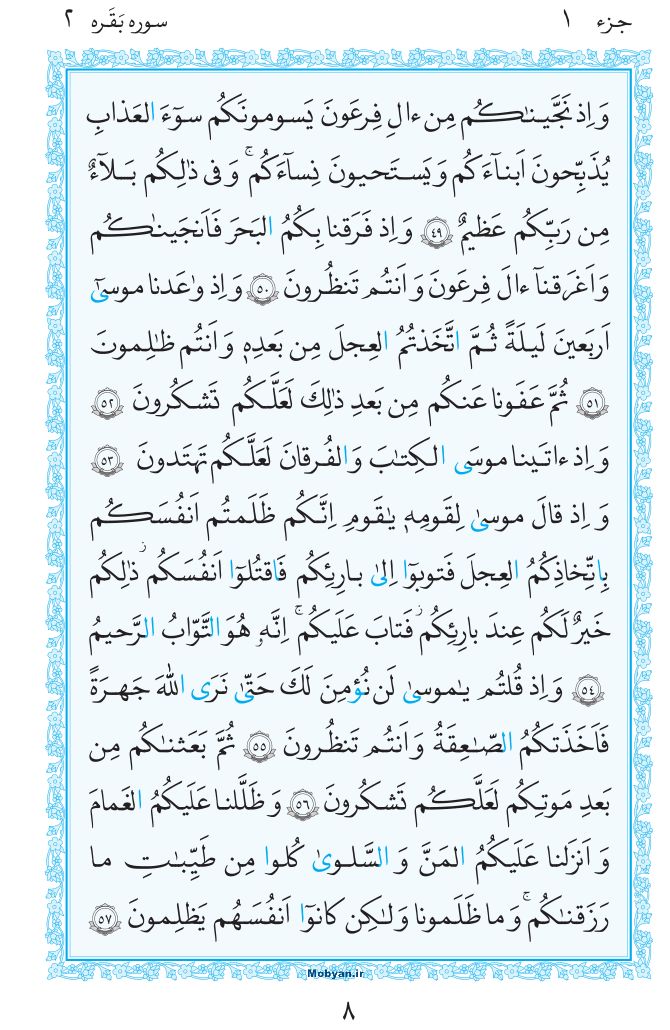 جزء ١ سوره بَقَره ٢
وَ اِذ نَجَّینٰکُم مِن ءالِ فِرعَونَ یَسومونَکُم سوٓءَ العَذابِ
یُذَبِّحونَ اَبنآءَکُم وَ یَستَحیونَ نِسآءَکُم ۚ وَ فی ذٰلِکُم بَلآءٌ
مِن رَبِّکُم عَظیمٌ ﴿٤٩﴾ وَ اِذ فَرَقنا بِکُمُ البَحرَ فَاَنجَینٰکُم
وَ اَغرَقنآ ءالَ فِرعَونَ وَ اَنتُم تَنظُرونَ ﴿٥٠﴾ وَ اِذ وٰعَدنا موسیٰٓ
اَربَعینَ لَیلَةً ثُمَّ اتَّخَذتُمُ العِجلَ مِن بَعدِهٖ وَ اَنتُم ظٰلِمونَ
﴿٥١﴾ ثُمَّ عَفَونا عَنکُم مِن بَعدِ ذٰلِکَ لَعَلَّکُم تَشکُرونَ ﴿٥٢﴾
وَ اِذ ءاتَینا موسَی الکِتٰبَ وَ الفُرقانَ لَعَلَّکُم تَهتَدونَ ﴿٥٣﴾
وَ اِذ قالَ موسیٰ لِقَومِهٖ یٰقَومِ اِنَّکُم ظَلَمتُم اَنفُسَکُم
بِاتِّخاذِکُمُ العِجلَ فَتوبوٓا اِلیٰ بارِئِکُم فَاقتُلوٓا اَنفُسَکُم ۖ ذٰلِکُم
خَیرٌ لَکُم عِندَ بارِئِکُم ۖ فَتابَ عَلَیکُم ۚ اِنَّهٗ هُوَ التَّوّابُ الرَّحیمُ
﴿٥٤﴾ وَ اِذ قُلتُم یٰموسیٰ لَن نُؤمِنَ لَکَ حَتّیٰ نَرَی اللّٰهَ جَهرَةً
فَاَخَذَتکُمُ الصّٰعِقَةُ وَ اَنتُم تَنظُرونَ ﴿٥٥﴾ ثُمَّ بَعَثنٰکُم مِن
بَعدِ مَوتِکُم لَعَلَّکُم تَشکُرونَ ﴿٥٦﴾ وَ ظَلَّلنا عَلَیکُمُ الغَمامَ
وَ اَنزَلنا عَلَیکُمُ المَنَّ وَ السَّلویٰ کُلوا مِن طَیِّبٰتِ ما
رَزَقنٰکُم ۚ وَ ما ظَلَمونا وَ لٰکِن کانوٓا اَنفُسَهُم یَظلِمونَ ﴿٥٧﴾
Mobyan.ir
٨